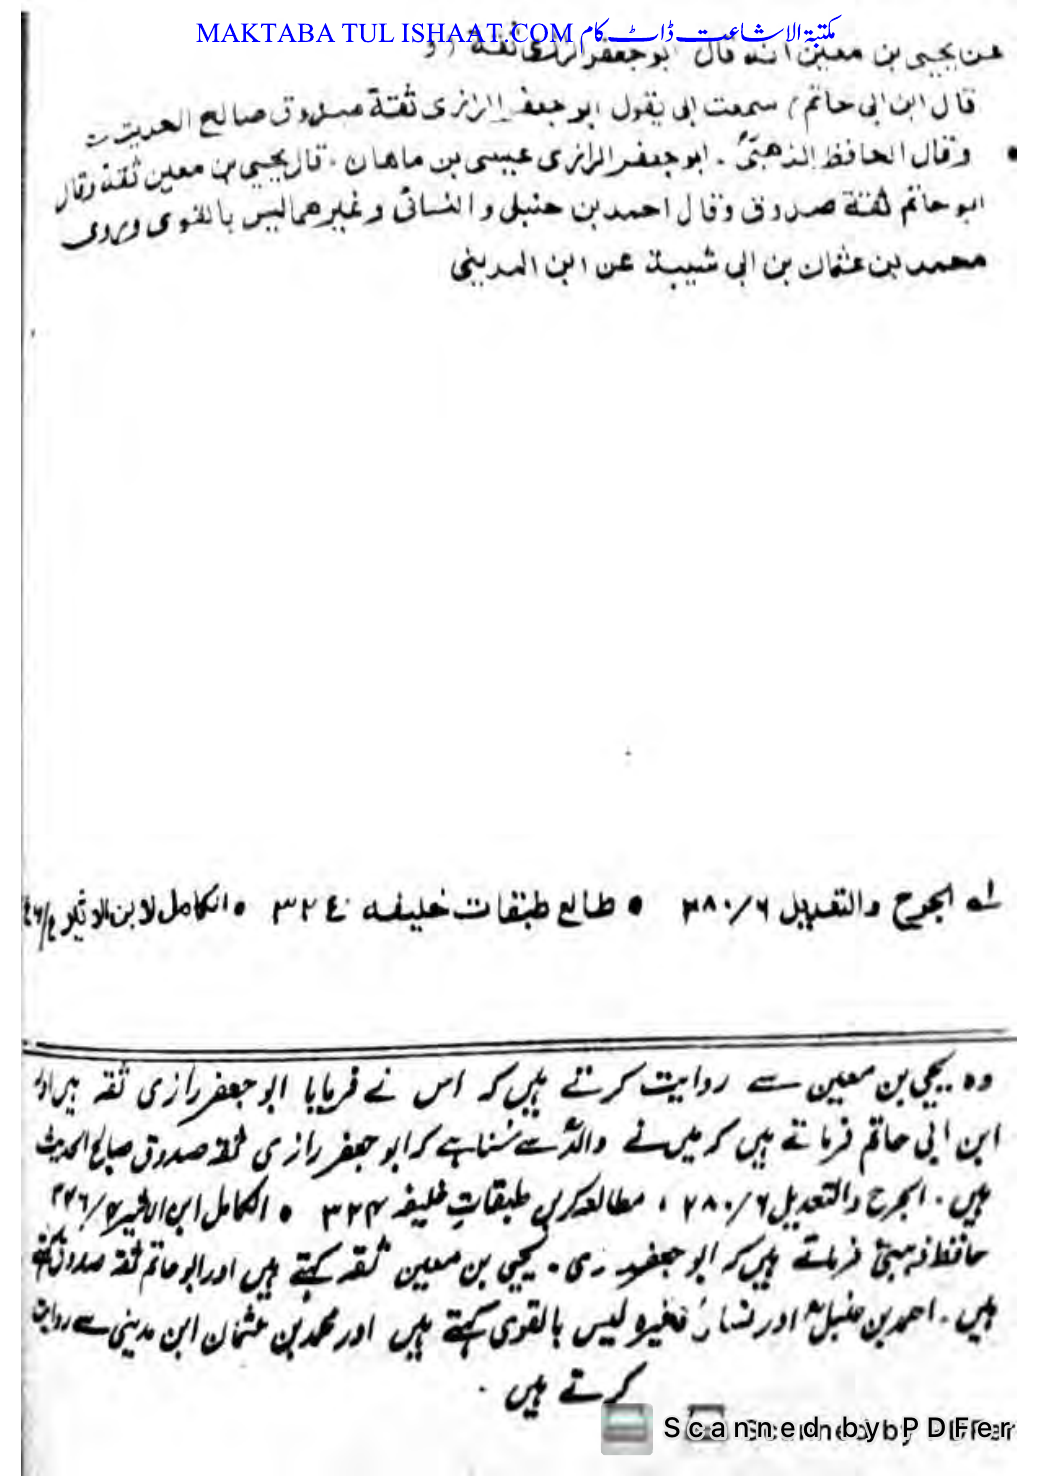 MAKTABA TUL ISHAAT.COM مکتبۃ الاشاعت ڈاٹ کام
عن یحیی بن معین انه قال ابو جعفر الرازی ثقة
قال ابن ابی حاتم سمعت ابی یقول ابو جعفر الرازی ثقة صدوق صالح الحدیث
• وقال الحافظ الذهبیؒ . ابو جعفر الرازی عیسی بن ماهان . قال یحیی بن معین ثقة وقال
ابو حاتم ثقة صدوق وقال احمد بن حنبل و النسائی و غیرهما لیس بالقوی وروی
محمد بن عثمان بن ابی شیبة عن ابن المدینی
لـه الجرح والتعدیل ۲۸۰/۶ • طالع طبقات خلیفه ۳۲٤ • الکامل لابن الاثیر
وہ یحیی بن معین سے روایت کرتے ہیں کہ اس نے فرمایا ابو جعفر رازی ثقہ ہیں اور
ابن ابی حاتم فرماتے ہیں کہ میں نے والدؒ سے سُنا ہے کہ ابو جعفر رازی ثقہ صدوق صالح الحدیث
ہیں . الجرح والتعدیل ۲۸۰/۶ ، مطالعہ کریں طبقاتِ خلیفہ ۳۲۴ • الکامل ابن الاثیر
حافظ ذہبیؒ فرماتے ہیں کہ ابو جعفر رازی . یحیی بن معین ثقہ کہتے ہیں اور ابو حاتم ثقہ صدوق کہتے
ہیں . احمد بن حنبلؒ اور نسائیؒ وغیرہ لیس بالقوی کہتے ہیں اور محمد بن عثمان ابن مدینی سے روایت
کرتے ہیں .
Scanned by PDFer